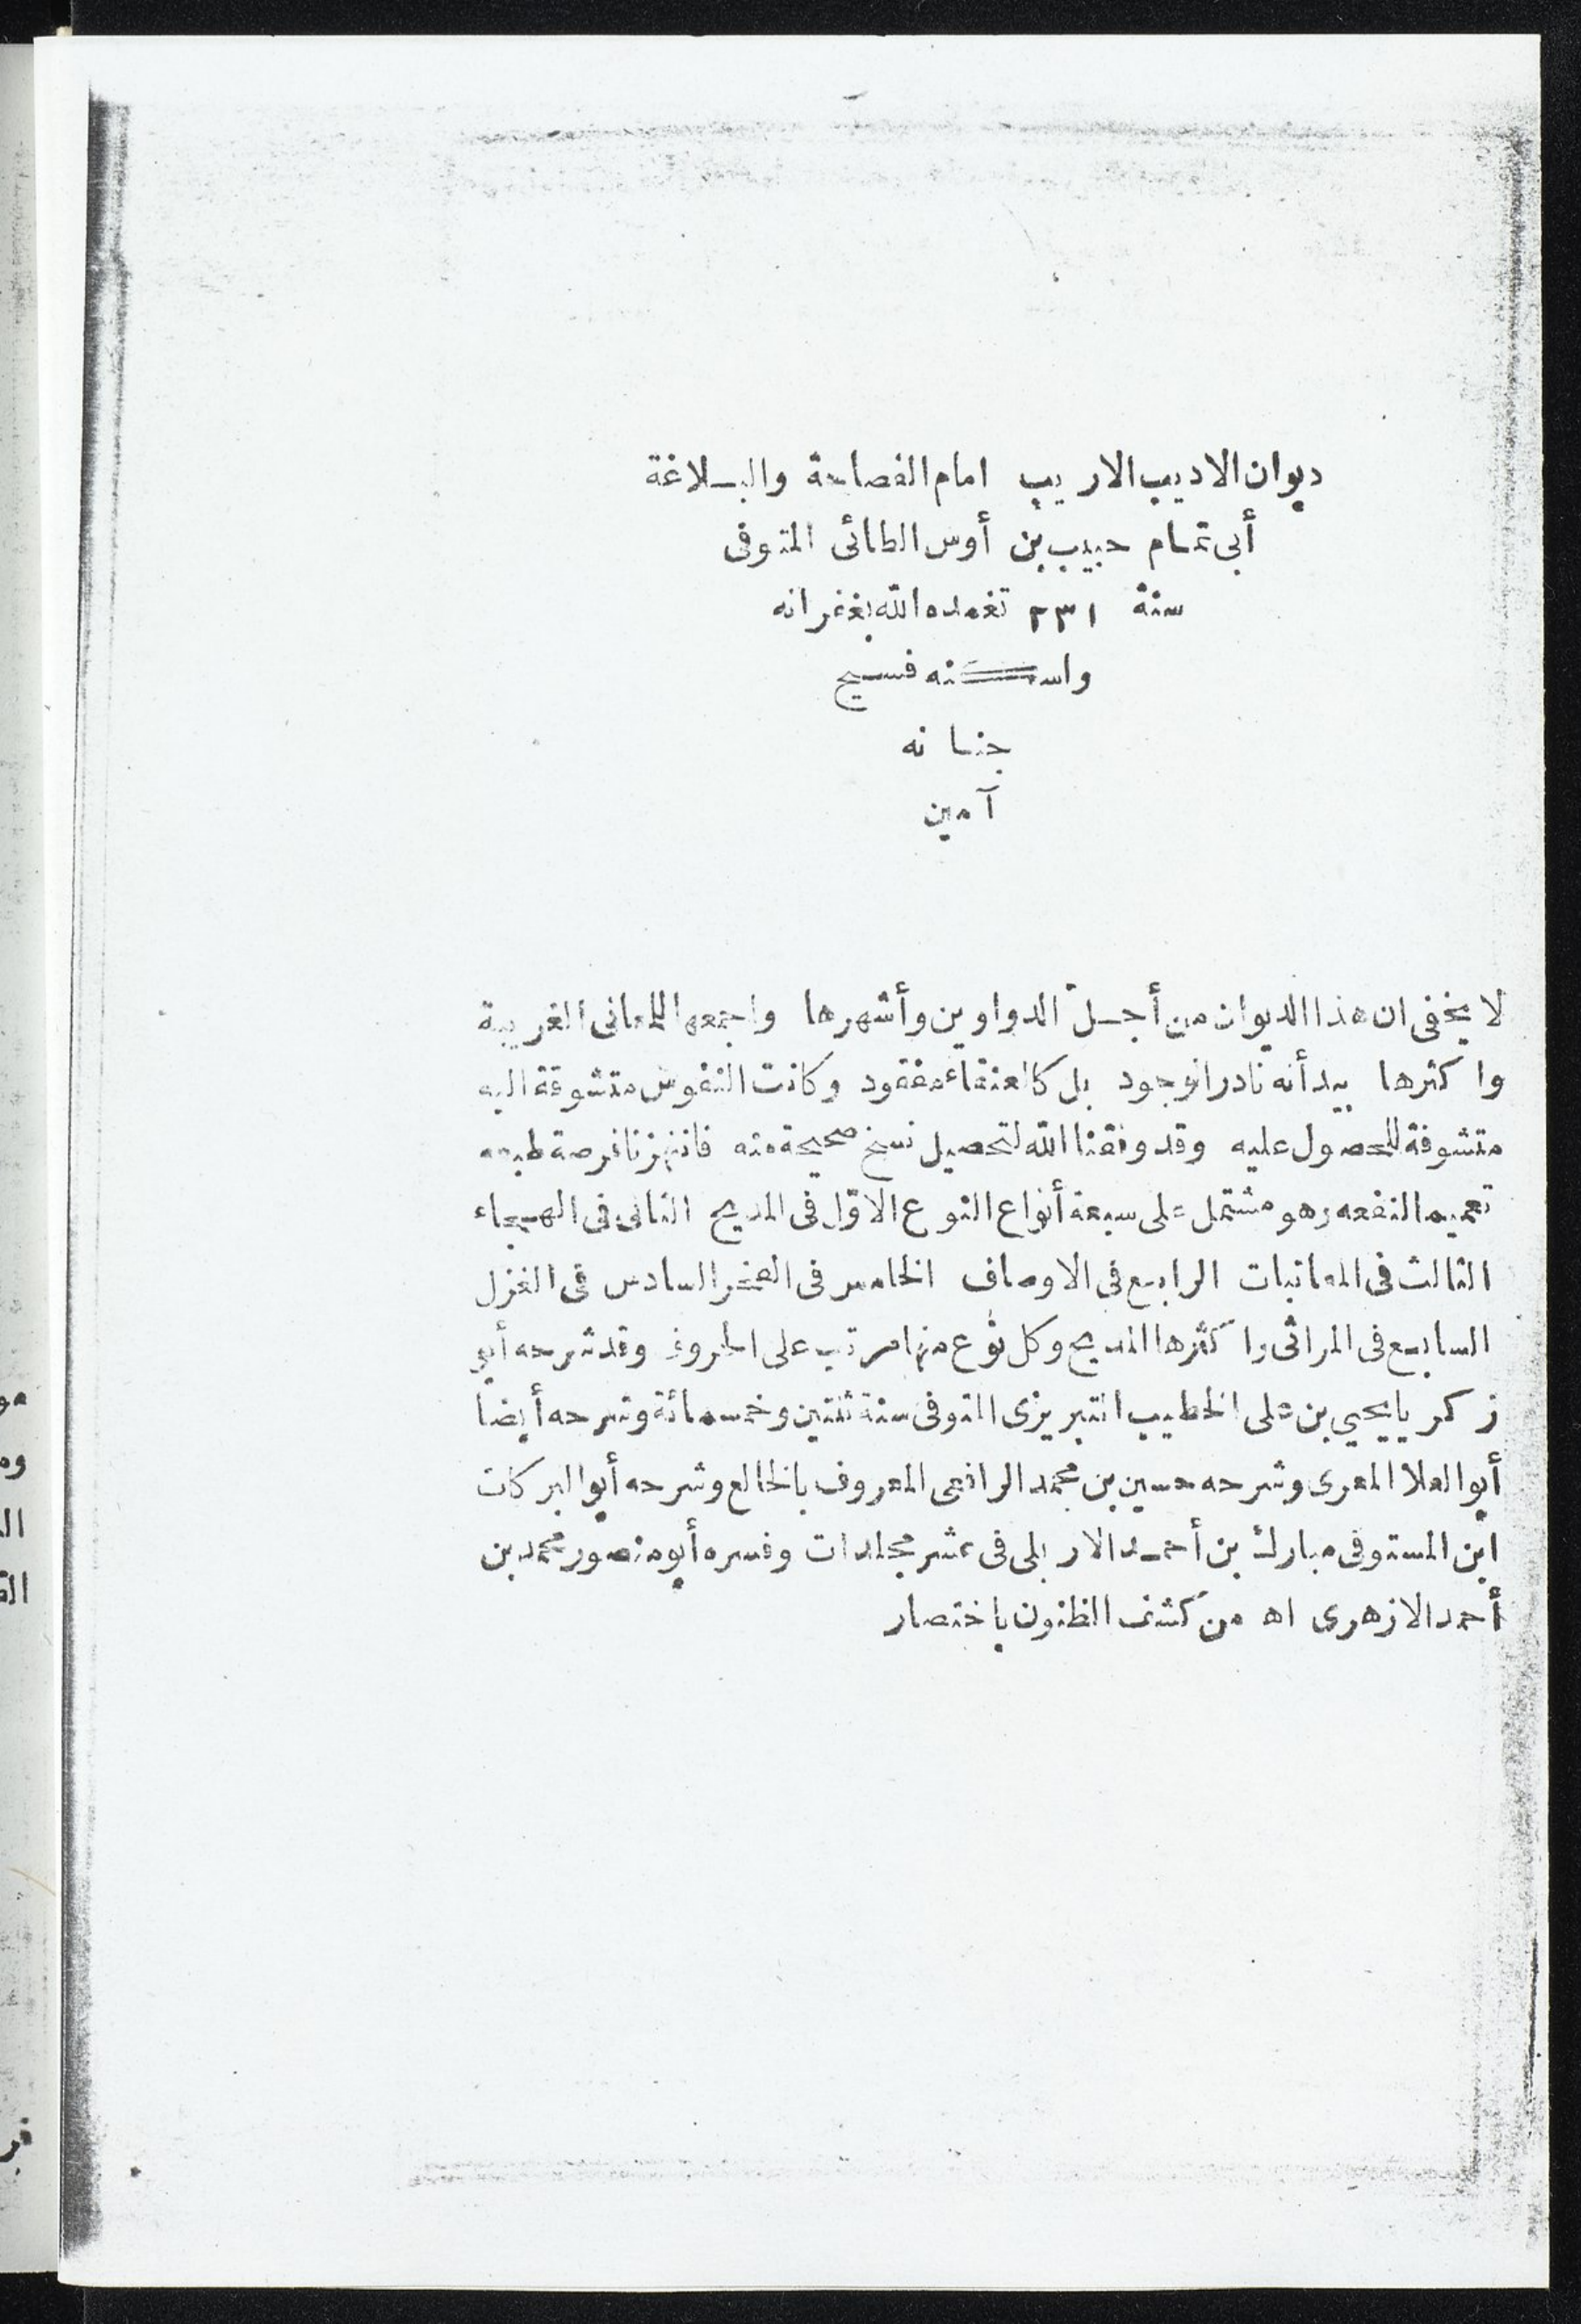 ديوان الاديب الاريب امام الفصاحة والبلاغة
أبى تمام حبيب بن أوس الطائى المتوفى
سنة ٢٣١ تغمده الله بغفرانه
واسكنه فسيح
جنانه
آمين
لا يخفى ان هذا الديوان من أجلّ الدواوين وأشهرها واجمعها للمعانى الغريبة
واكثرها بيد أنه نادر الوجود بل كالعنقاء مفقود وكانت النفوس متشوقة اليه
متشوفة للحصول عليه وقد وفقنا الله لتحصيل نسخ صحيحة منه فانتهزنا فرصة طبعه
تعميما لنفعه وهو مشتمل على سبعة أنواع النوع الاوّل فى المديح الثانى فى الهجاء
الثالث فى المعاتبات الرابع فى الاوصاف الخامس فى الفخر السادس فى الغزل
السابع فى المراثى واكثرها المديح وكل نوع منها مرتب على الحروف وقد شرحه أبو
زكريا يحيي بن على الخطيب التبريزى المتوفى سنة ثنتين وخمسمائة وشرحه أيضا
أبو العلا المعرى وشرحه حسين بن محمد الرافعى المعروف بالخالع وشرحه أبو البركات
ابن المستوفى مبارك بن أحمد الاربلى فى عشر مجلدات وفسره أبو منصور محمد بن
أحمد الازهرى اه من كشف الظنون باختصار